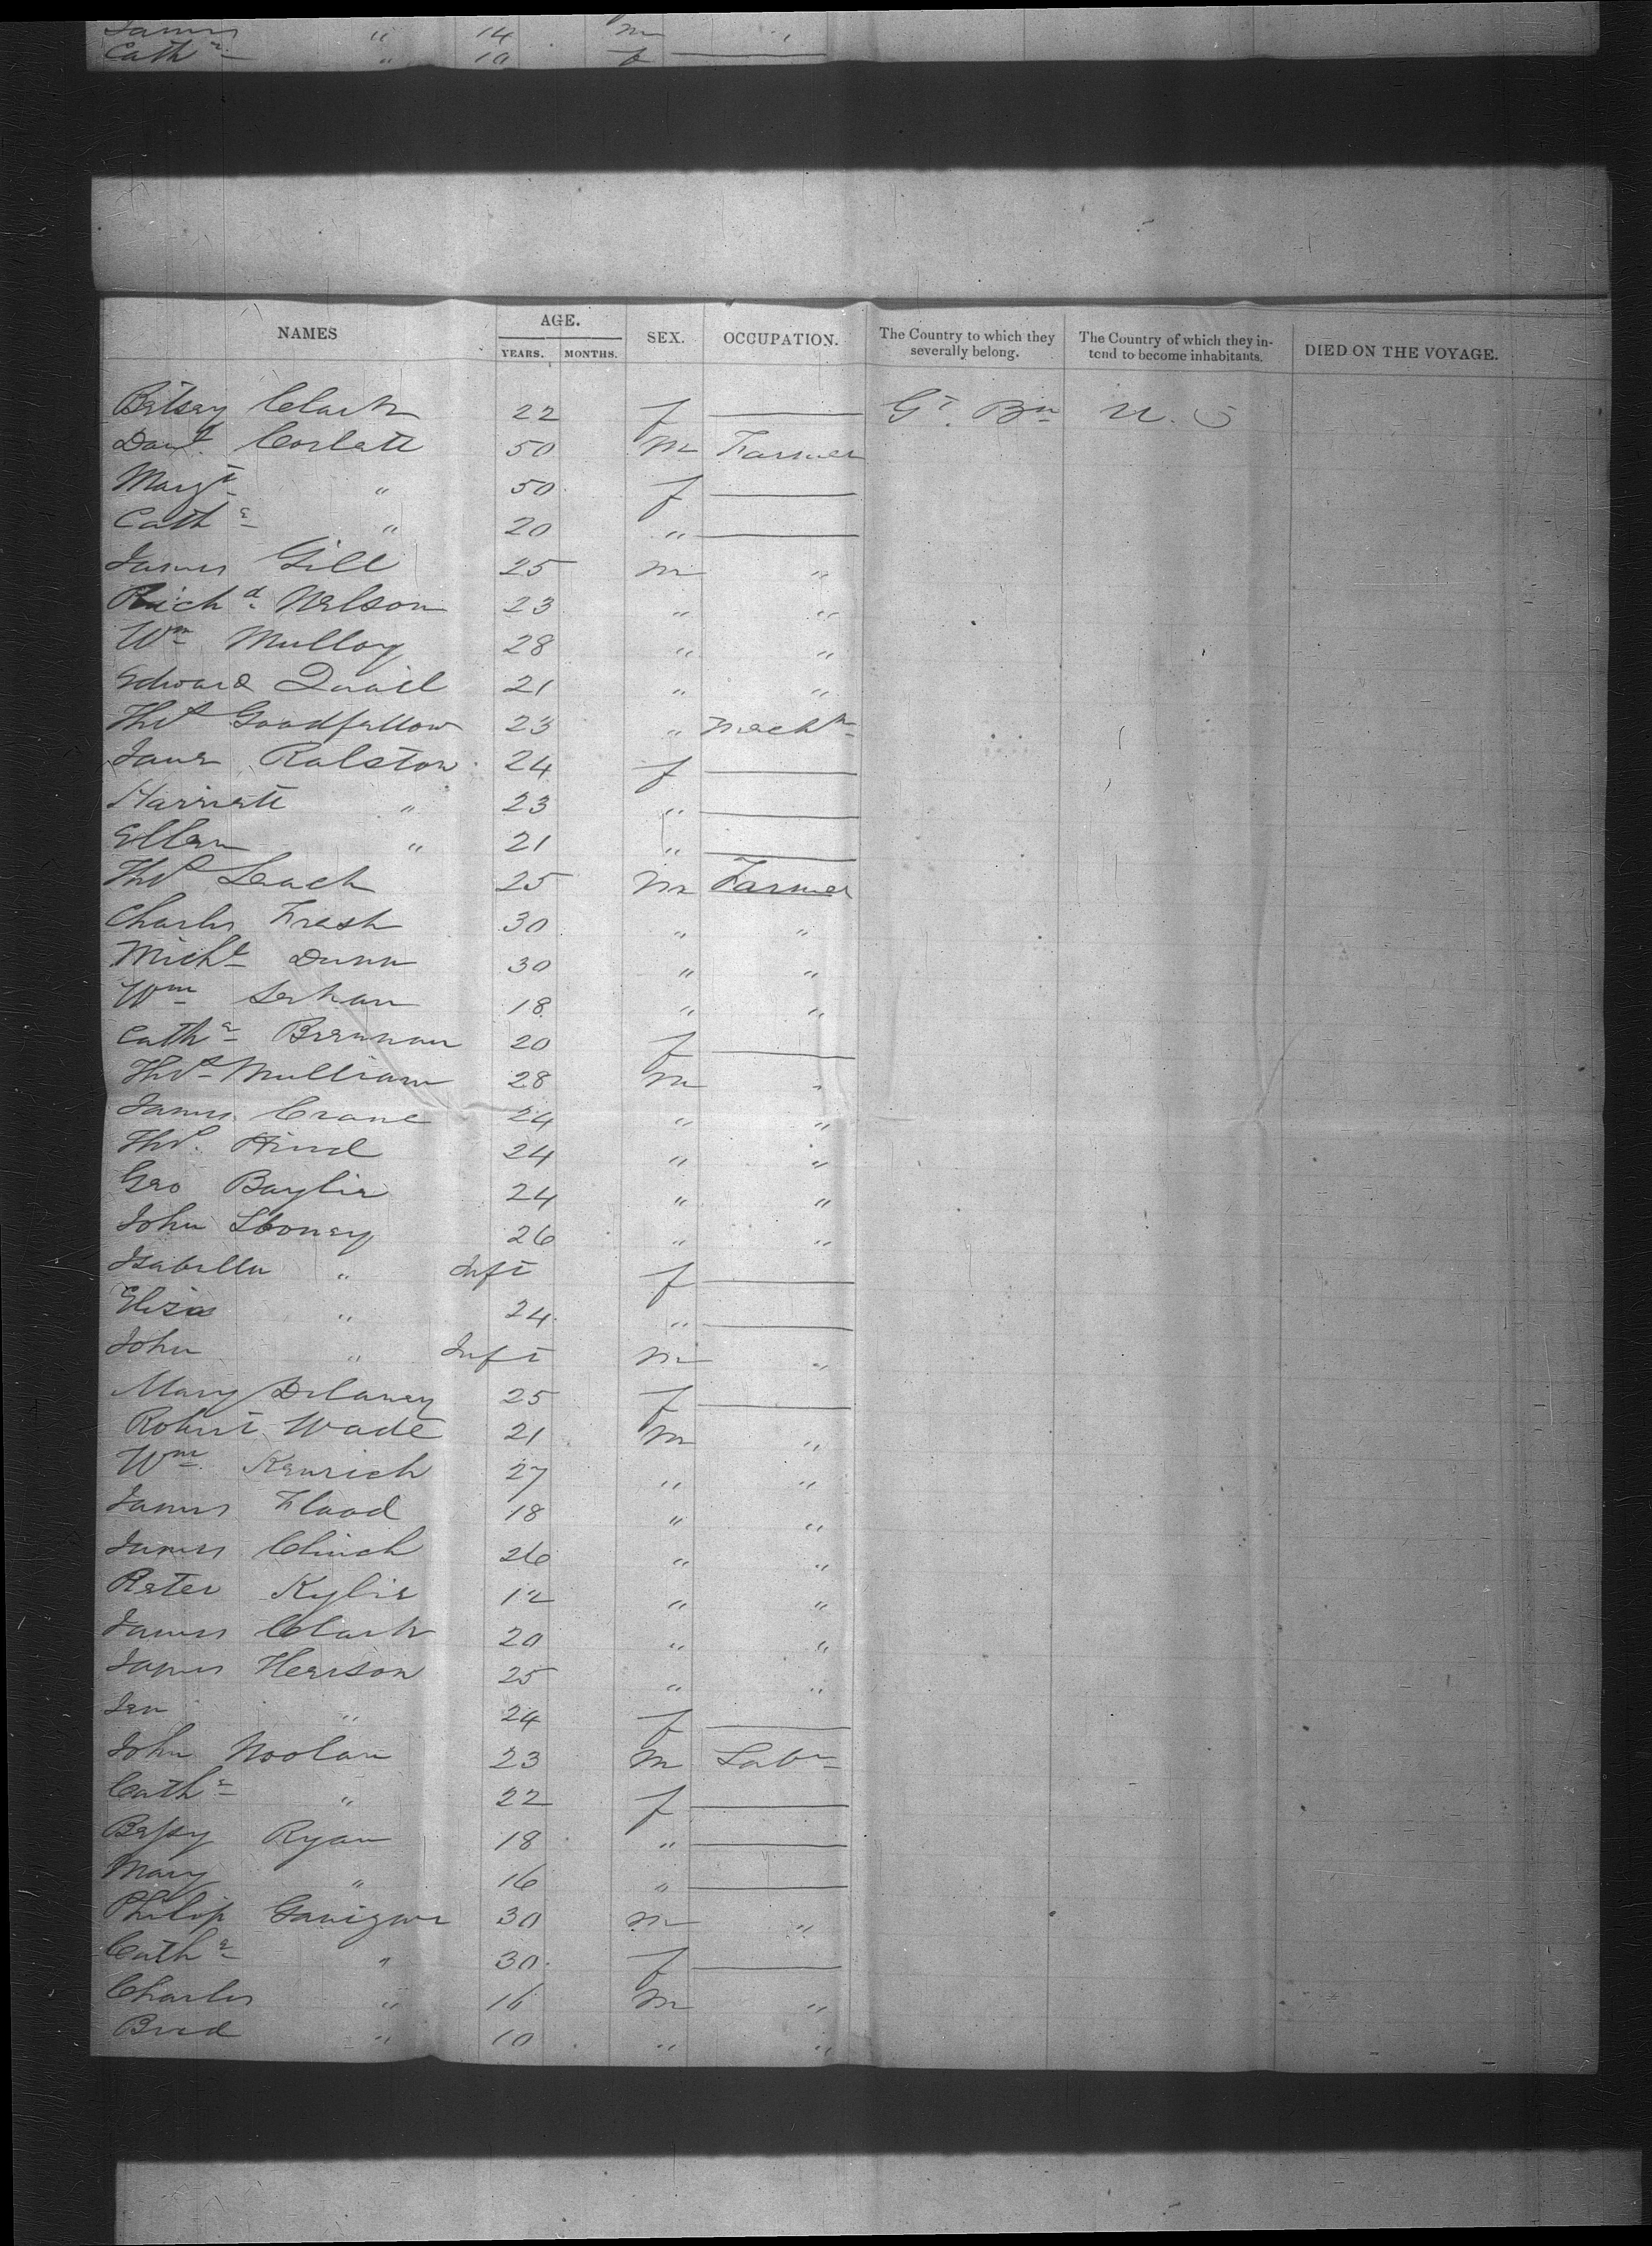 James " 14 m "
Cathe " 10 f —
NAMES AGE. YEARS. MONTHS. SEX. OCCUPATION. The Country to which they severally belong. The Country of which they intend to become inhabitants. DIED ON THE VOYAGE.
Betsey Clark 22 f — Gt. Bn U. S
Danl. Corlett 50 m Farmer
Margt " 50 f —
Cathe " 20 " —
James Gill 25 m "
Richd. Nelson 23 " "
Wm Mulloy 28 " "
Edward Quail 21 " "
Thos Goodfellow 23 " Mechn
Jane Ralston 24 f —
Harriett " 23 " —
Ellen " 21 " —
Thos Leach 25 m Farmer
Charles 30 " "
Michl Dunn 30 " "
Wm 18 " "
Cathe Brennan 20 f —
Thos Mulliam 28 m "
James Crane 24 " "
Thos. Hind 24 " "
Geo Baylie 24 " "
John Looney 26 " "
Isabella " Inft f —
Eliza " 24 " —
John " Inft m "
Mary Delaney 25 f —
Robert Wade 21 m "
Wm. Kenrich 27 " "
James Flood 18 " "
James Clinch 26 " "
Peter Kylie 12 " "
James Clark 20 " "
James Herison 25 " "
Jen " 24 f —
John Noolan 23 m Labr
Cathe " 22 f —
Bessy Ryan 18 " —
Mary " 16 " —
Philip 30 m "
Cathe " 30 f —
Charles " 16 m "
" 10 " "